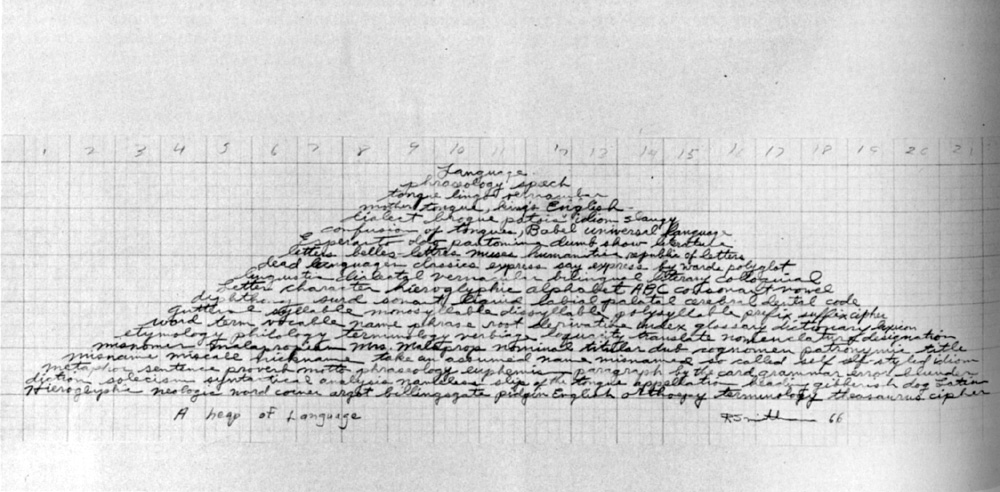 1 2 3 4 5 6 7 8 9 10 11 12 13 14 15 16 17 18 19 20 21
Language
phraseology speech
tongue lingo vernacular
mother tongue, king's English
dialect brogue patois idiom slangy
confusion of tongues, Babel universal language
Esperanto dog pantomime dumb show literature
letters belles-lettres muses humanities republic of letters
dead languages classics express say express by words polyglot
linguistic dialectal vernacular bilingual literary colloquial
letter character hieroglyphic alphabet ABC consonant vowel
diphthong surd sonant liquid labial palatal cerebral dental code
guttural syllable monosyllable dissyllable polysyllable prefix suffix cipher
word term vocable name phrase root derivative index glossary dictionary lexicon
etymology philology terminology verbiage translate nomenclature designation
misnomer malapropism Mrs. Malaprop nominal titular dub cognomen patronymic title
misname miscall nickname take an assumed name misnamed so-called self
metaphor sentence proverb motto phraseology euphemism paragraph by the card grammar error blunder
diction solecism syntactical analysis nameless slip of the tongue appellation heading gibberish dog Latin
Hieroglyphic neologic word coiner argot billingsgate pidgin English orthoepy terminology thesaurus cipher
A heap of Language
RSmithson 66